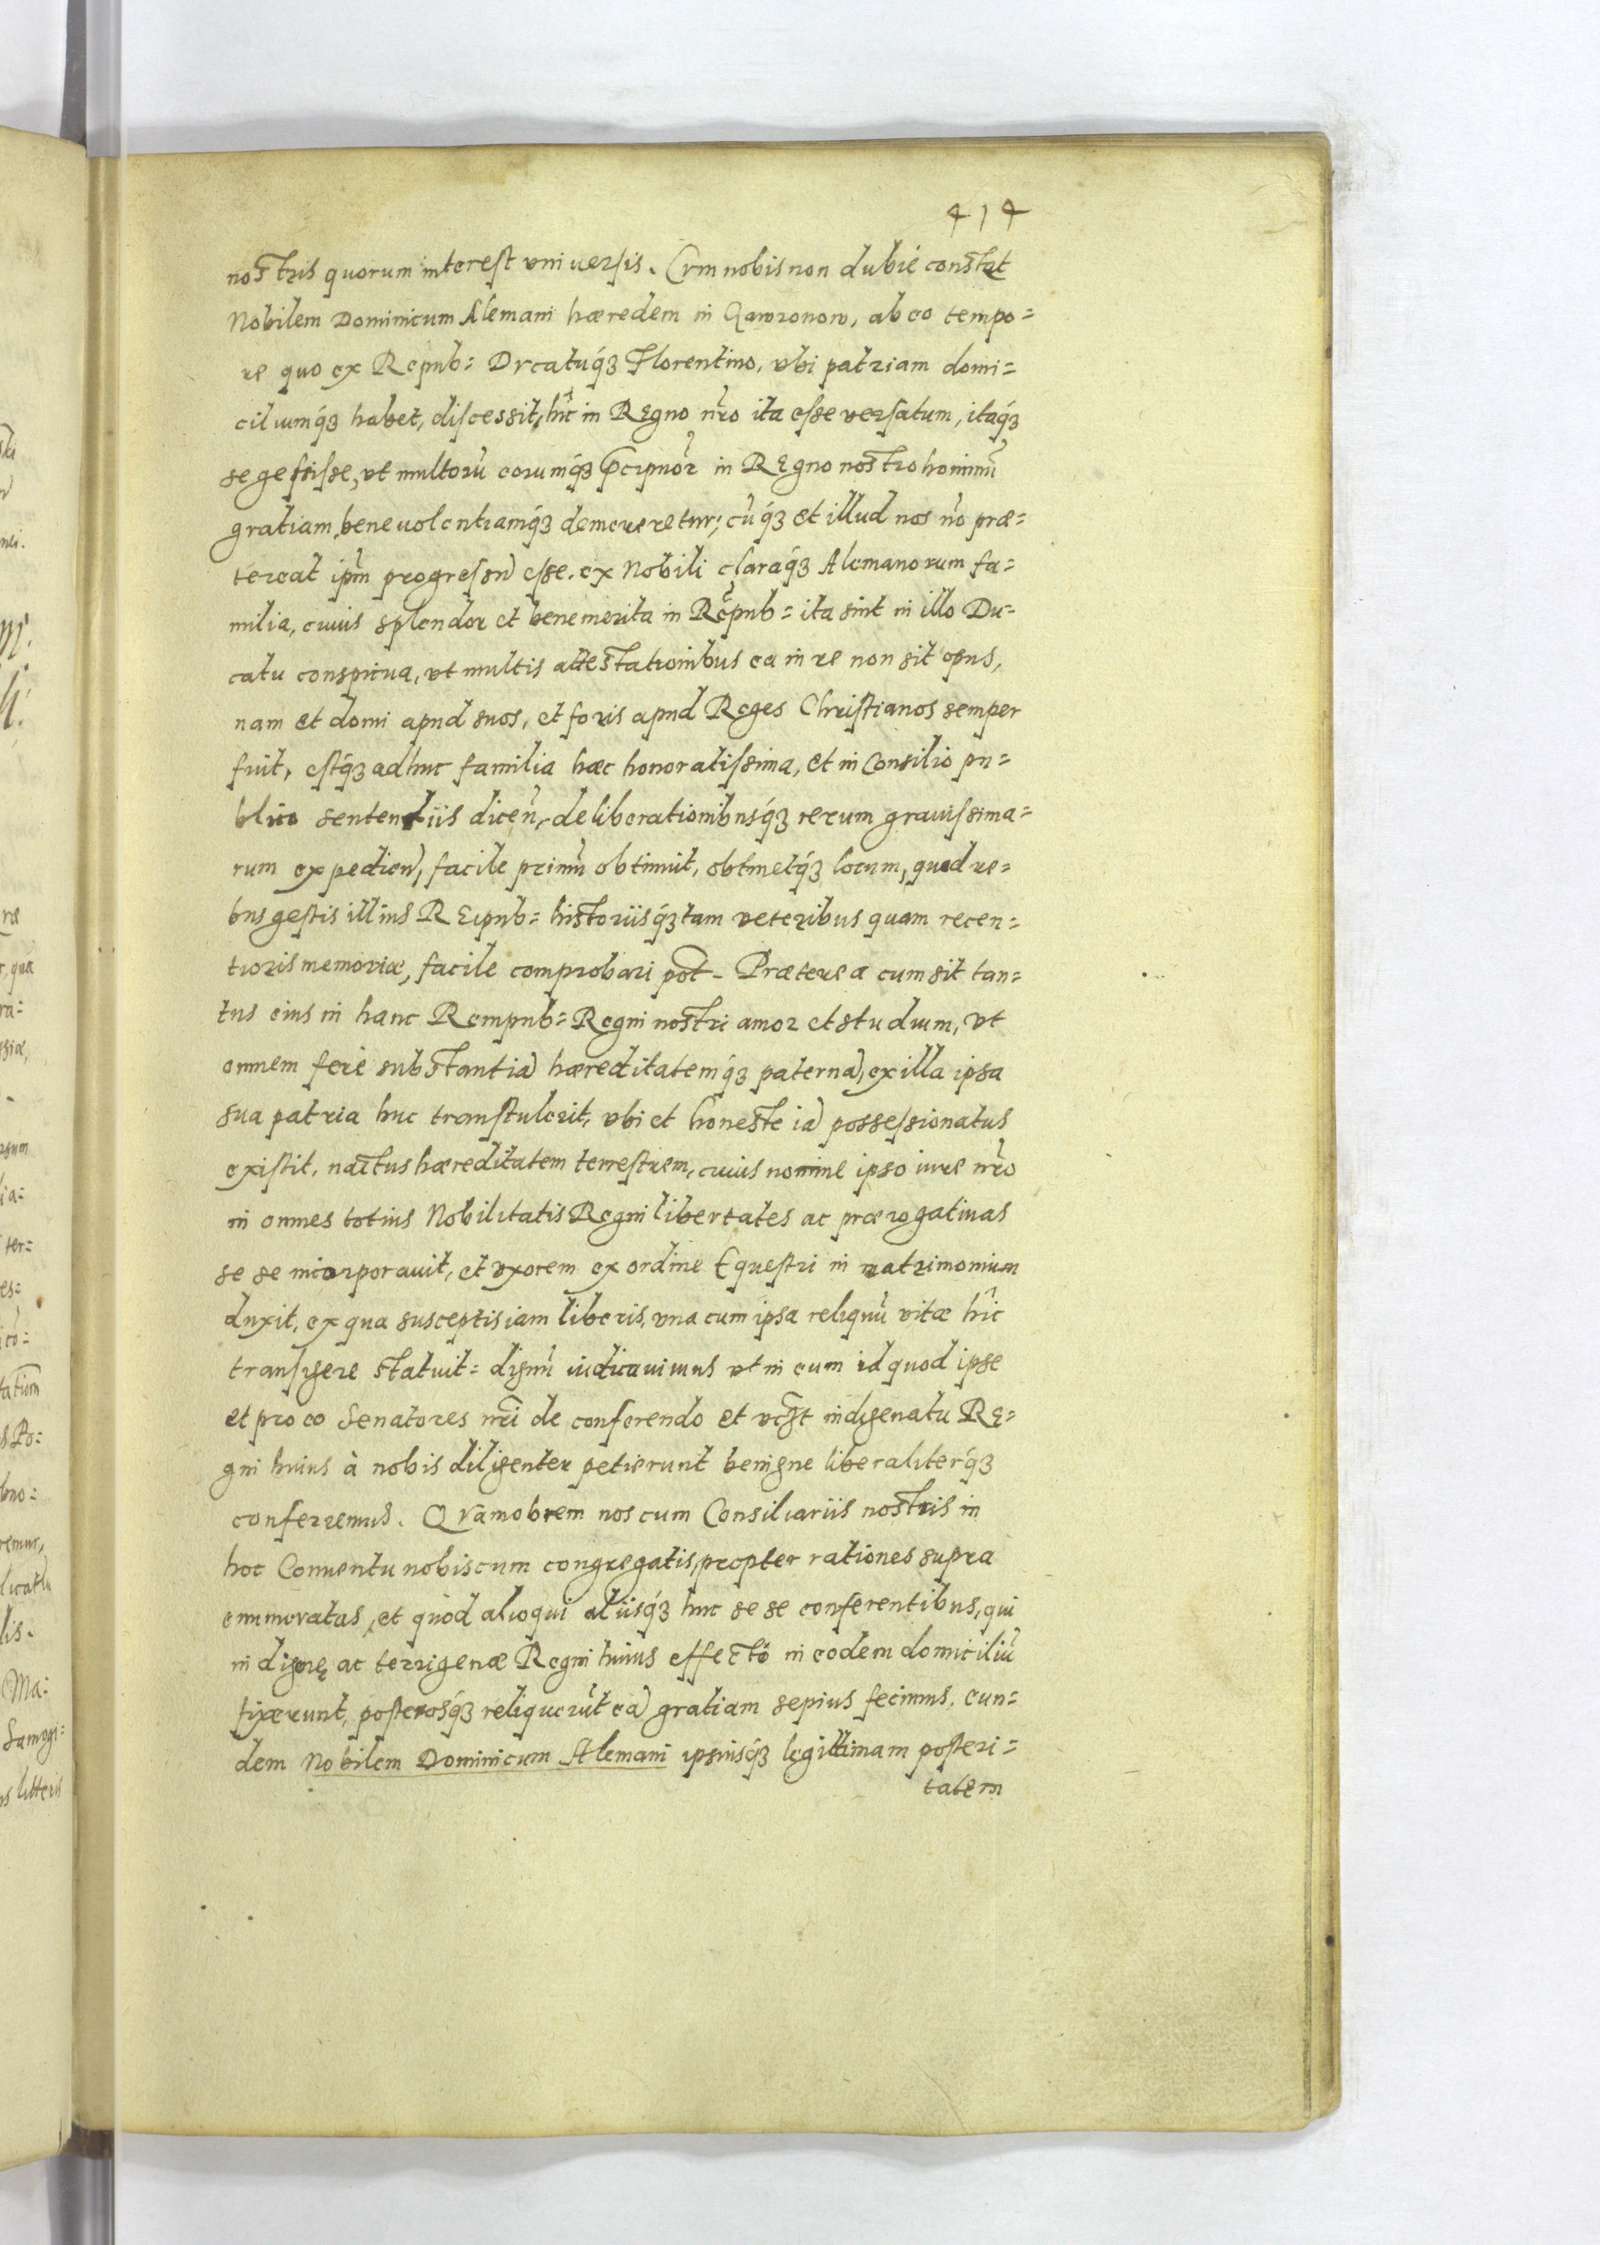 414
nostris quorum interest vniuersis. Cvm nobis non dubie constet
Nobilem Dominicum Alemani hæredem in Gawronow, ab eo tempo=
re quo ex Repub= Dvcatuq́ꝫ Florentino, vbi patriam domi=
ciliumq́ꝫ habet, discessit, hîc in Regno nr̃o ita esse versatum, itaq́ꝫ
se gessisse, vt multorũ eorumq́ꝫ p̃cipuor̃ in Regno nostro hominũ
gratiam, beneuolentiamq́ꝫ demereretur; cũq́ꝫ et illud nos nõ præ=
tereat ip̃m progressũ esse ex Nobili claraq́ꝫ Alemanorum fa=
milia, cuius splendor et benemerita in Rẽpub= ita sint in illo Du=
catu conspicua, vt multis attestationibus ea in re non sit opus,
nam et domi apud suos, et foris apud Reges Christianos semper
fuit, estq́ꝫ adhuc familia hæc honoratissima, et in Consilio pu=
blico sententiis dicen̄, deliberationibusq́ꝫ rerum grauissima=
rum expedien̄, facile primũ obtinuit, obtinetq́ꝫ locum, quod re=
bus gestis illius Reipub= historiisq́ꝫ tam veteribus quam recen=
tioris memoriæ, facile comprobari pot̃. Præterea cum sit tan=
tus eius in hanc Rempub= Regni nostri amor et studium, vt
omnem ferè substantiã hæreditatemq́ꝫ paternã, ex illa ipsa
sua patria huc transtulerit, vbi et honeste iã possessionatus
existit, nactus hæreditatem terrestrem, cuius nomine ipso iure nr̃o
in omnes totius Nobilitatis Regni libertates ac prærogatiuas
se se incorporauit, et vxorem ex ordine Equestri in matrimonium
duxit, ex qua susceptis iam liberis, vna cum ipsa reliquũ vitæ hîc
transigere statuit= dignũ iudicauimus vt in eum id quod ipse
et pro eo Senatores nr̃i de conferendo et indigenatu Re=
gni huius à nobis diligenter petierunt benigne liberaliterq́ꝫ
conferremus. Qvamobrem nos cum Consiliariis nostris in
hoc Conuentu nobiscum congregatis, propter rationes supra
enumeratas, et quòd alioqui aliisq́ꝫ huc se se conferentibus, qui
indigenę ac terrigenæ Regni huius effecti in eodem domiciliũ
fixerunt, posterosq́ꝫ reliquerũt eã gratiam sepius fecimus, eun=
dem Nobilem Dominicum Alemani ipsiusq́ꝫ legittimam posteri=
tatem